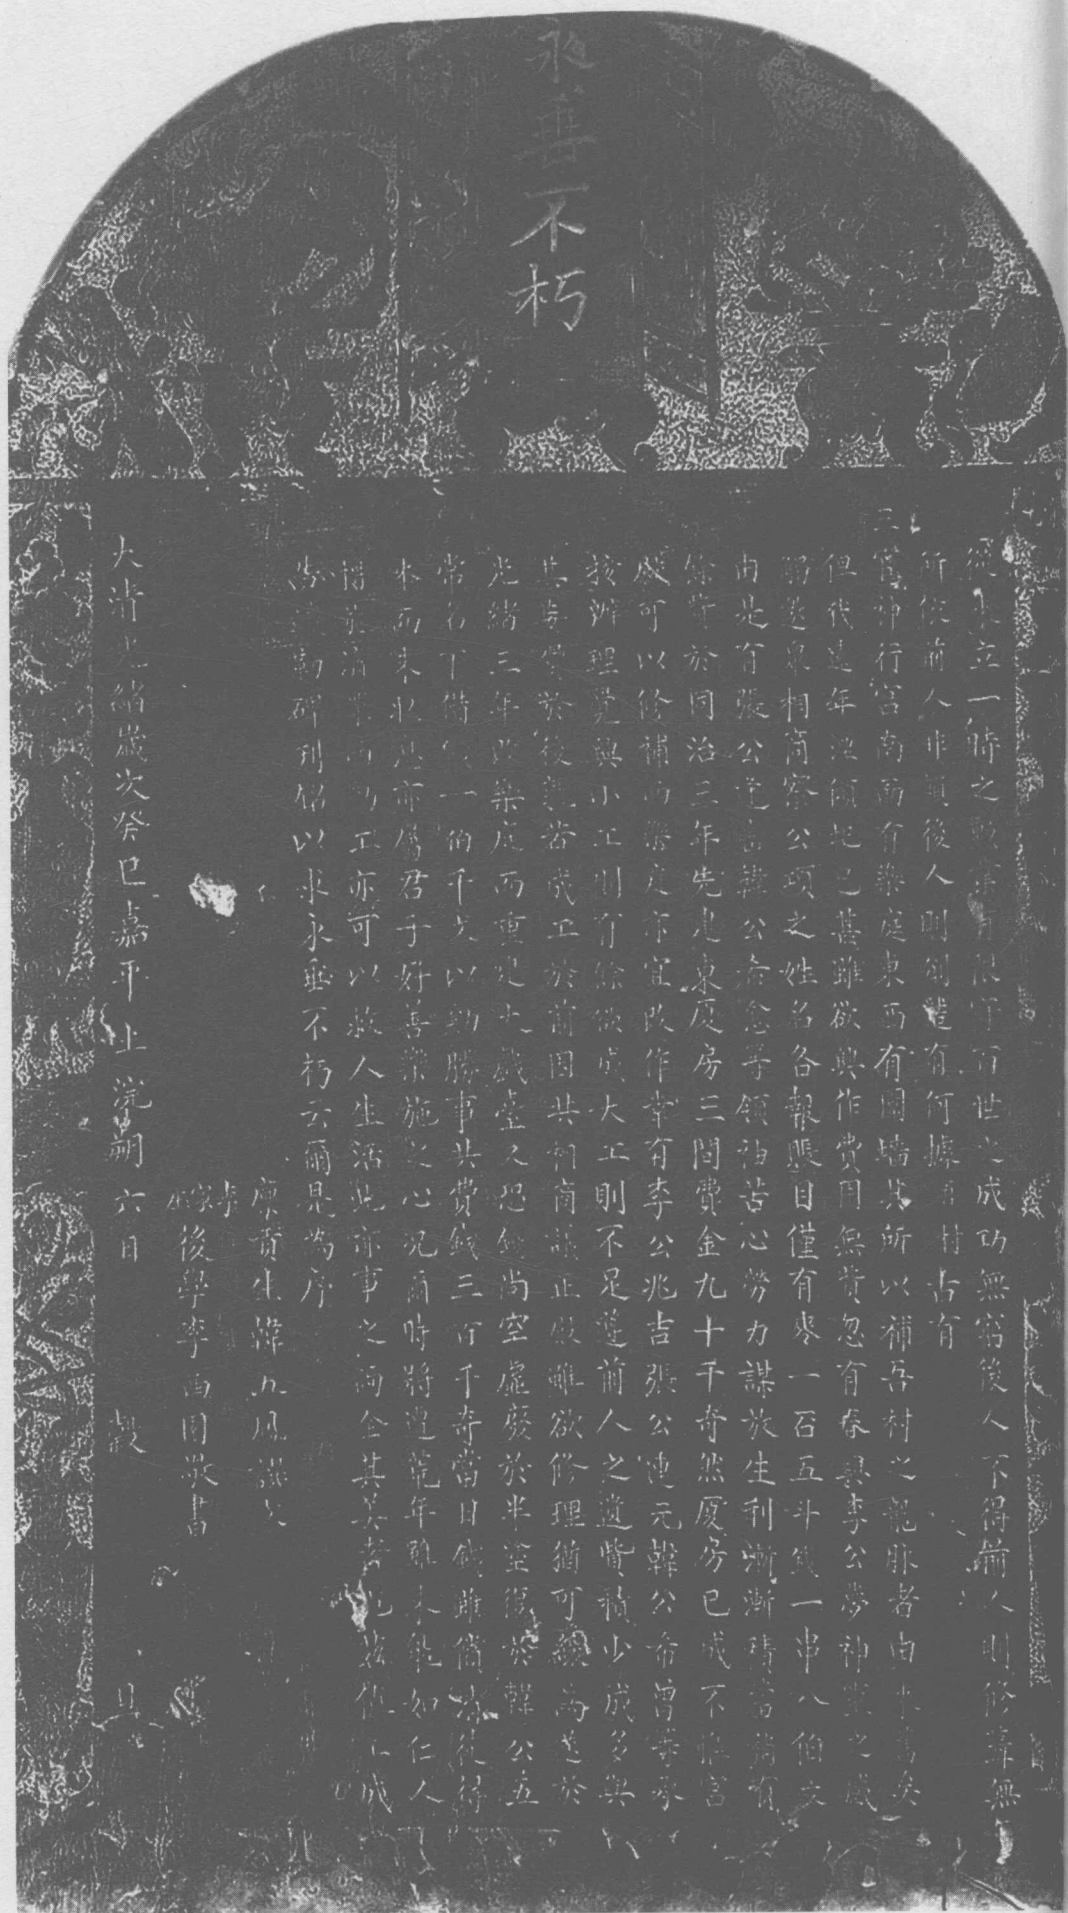 永垂不朽
立一時之有限下百世之成功無窮後人不得前人則修葺無
所依前人非賴後人則創建有何據吾村古有
三官神行宮南面有樂庭東西有圍墻其所以補吾村之龍脉者由來舊矣
但代遠年湮傾圮已甚雖欲興作費用無資忽有春與李公夢神靈之感
邀衆相商察公項之姓名各報賬目僅有麥一石五斗錢一串八伯文
由是有張公韓公希愈等領袖苦心勞力謀放生利漸漸積富尚有
餘於同治三年先建東厦房三間費金九十千奇然厦房已成不惟宫
殿可以修補而樂庭亦宜改作幸有李公兆吉張公連元韓公希曾等承
按辦理覺興小工則有餘欲成大工則不足遂前人之遺貲積少成多與
其專樂於後孰若成工於前因共相商議正殿雖欲修理猶可緩焉遂於
光緒三年毀樂庭而重建大戲臺又恐錢尚空虛廢於半塗復於韓公五
常名下借錢一伯千文以勷勝事共費錢三百千奇當日錢雖借法徒得
本而未收息亦屬君子好善樂施之心況爾時將遭荒年雖未能如仁人
工亦可以救人生活此亦事之兩全其美者也茲值工成
勒碑刊銘以求永垂不朽云爾是為序
廩貢生韓九鳳撰文
後學李西園敬書
大清光緒歲次癸巳嘉平上浣朔六日 穀旦